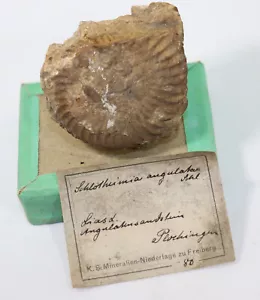 Schlotheimia angulata
Schl.
Lias α
Angulatensandstein
Plochingen
K. S. Mineralien-Niederlage zu Freiberg
80